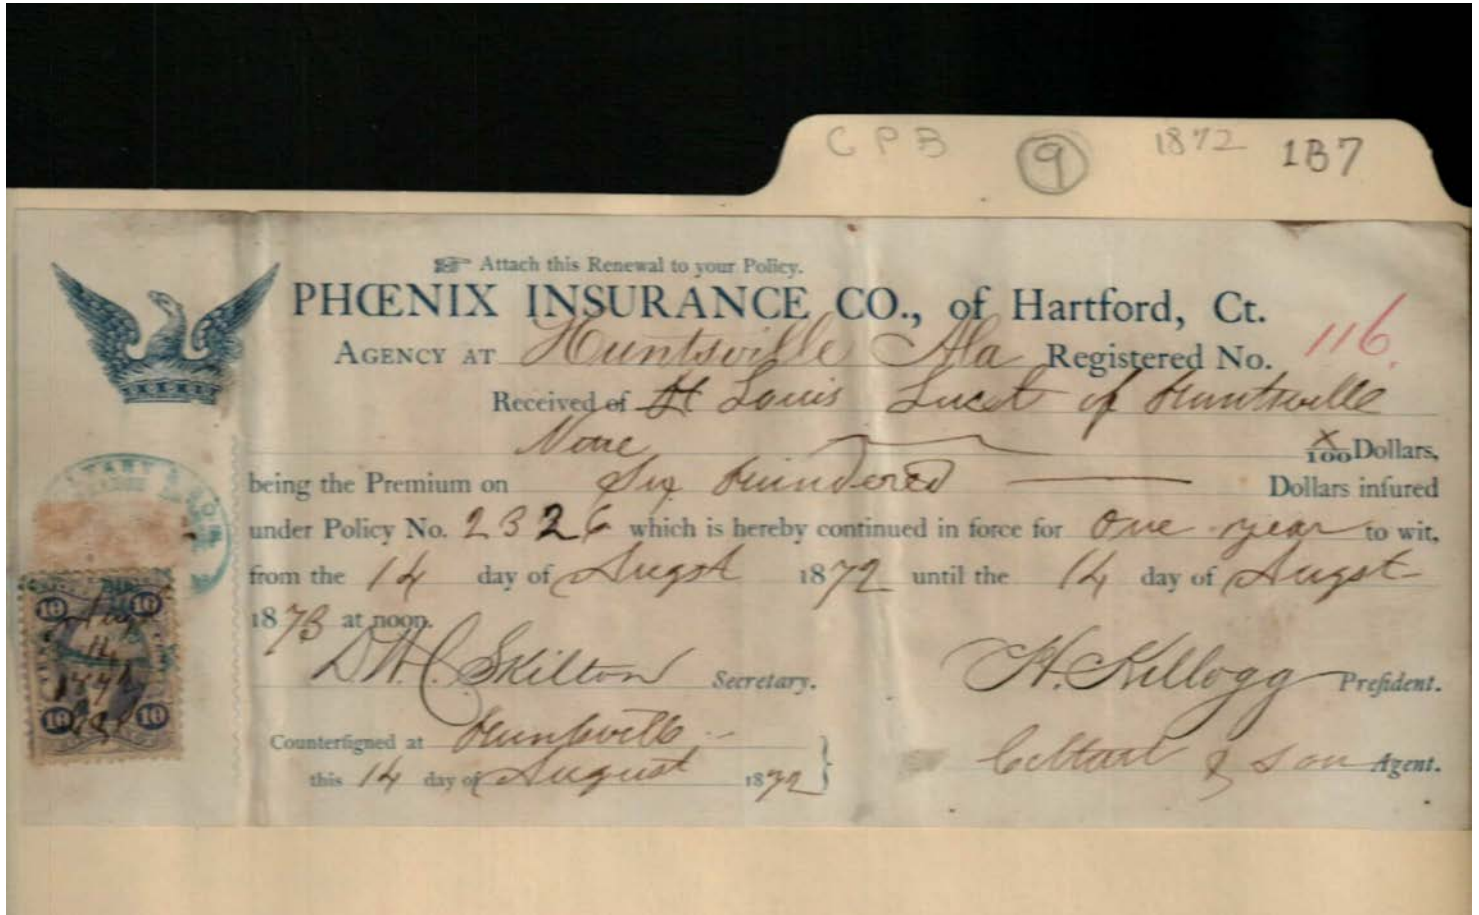 CPB 9 1872 1B7
☞ Attach this Renewal to your Policy.
PHŒNIX INSURANCE CO., of Hartford, Ct.
AGENCY AT Huntsville Ala Registered No. 116.
Received of Louis of Huntsville
None x/100 Dollars,
being the Premium on Six Hundered Dollars inſured
under Policy No. 2326 which is hereby continued in force for one year to wit,
from the 14 day of Augst 1872 until the 14 day of Augst
1873 at noon.
D.W.C. Skilton Secretary. H. Kellogg Preſident.
Counterſigned at Huntsville
this 14 day of August 1872 & Son Agent.
10 10
Augt
14
1872
10 10